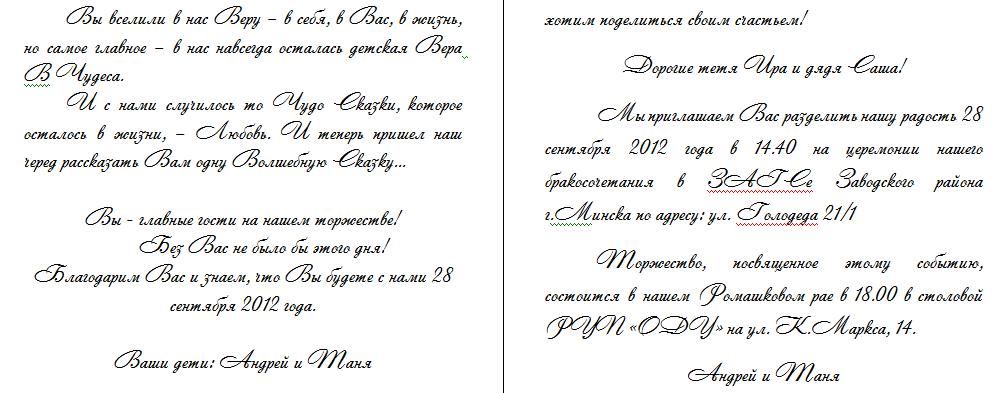 Вы вселили в нас Веру – в себя, в Вас, в жизнь,
но самое главное – в нас навсегда осталась детская Вера
В Чудеса.
И с нами случилось то Чудо Сказки, которое
осталось в жизни, – Любовь. И теперь пришел наш
черед рассказать Вам одну Волшебную Сказку...
Вы - главные гости на нашем торжестве!
Без Вас не было бы этого дня!
Благодарим Вас и знаем, что Вы будете с нами 28
сентября 2012 года.
Ваши дети: Андрей и Таня
хотим поделиться своим счастьем!
Дорогие тетя Ира и дядя Саша!
Мы приглашаем Вас разделить нашу радость 28
сентября 2012 года в 14.40 на церемонии нашего
бракосочетания в ЗАГСе Заводского района
г.Минска по адресу: ул. Голодеда 21/1
Торжество, посвященное этому событию,
состоится в нашем Ромашковом рае в 18.00 в столовой
РУП «ОДУ» на ул. К.Маркса, 14.
Андрей и Таня